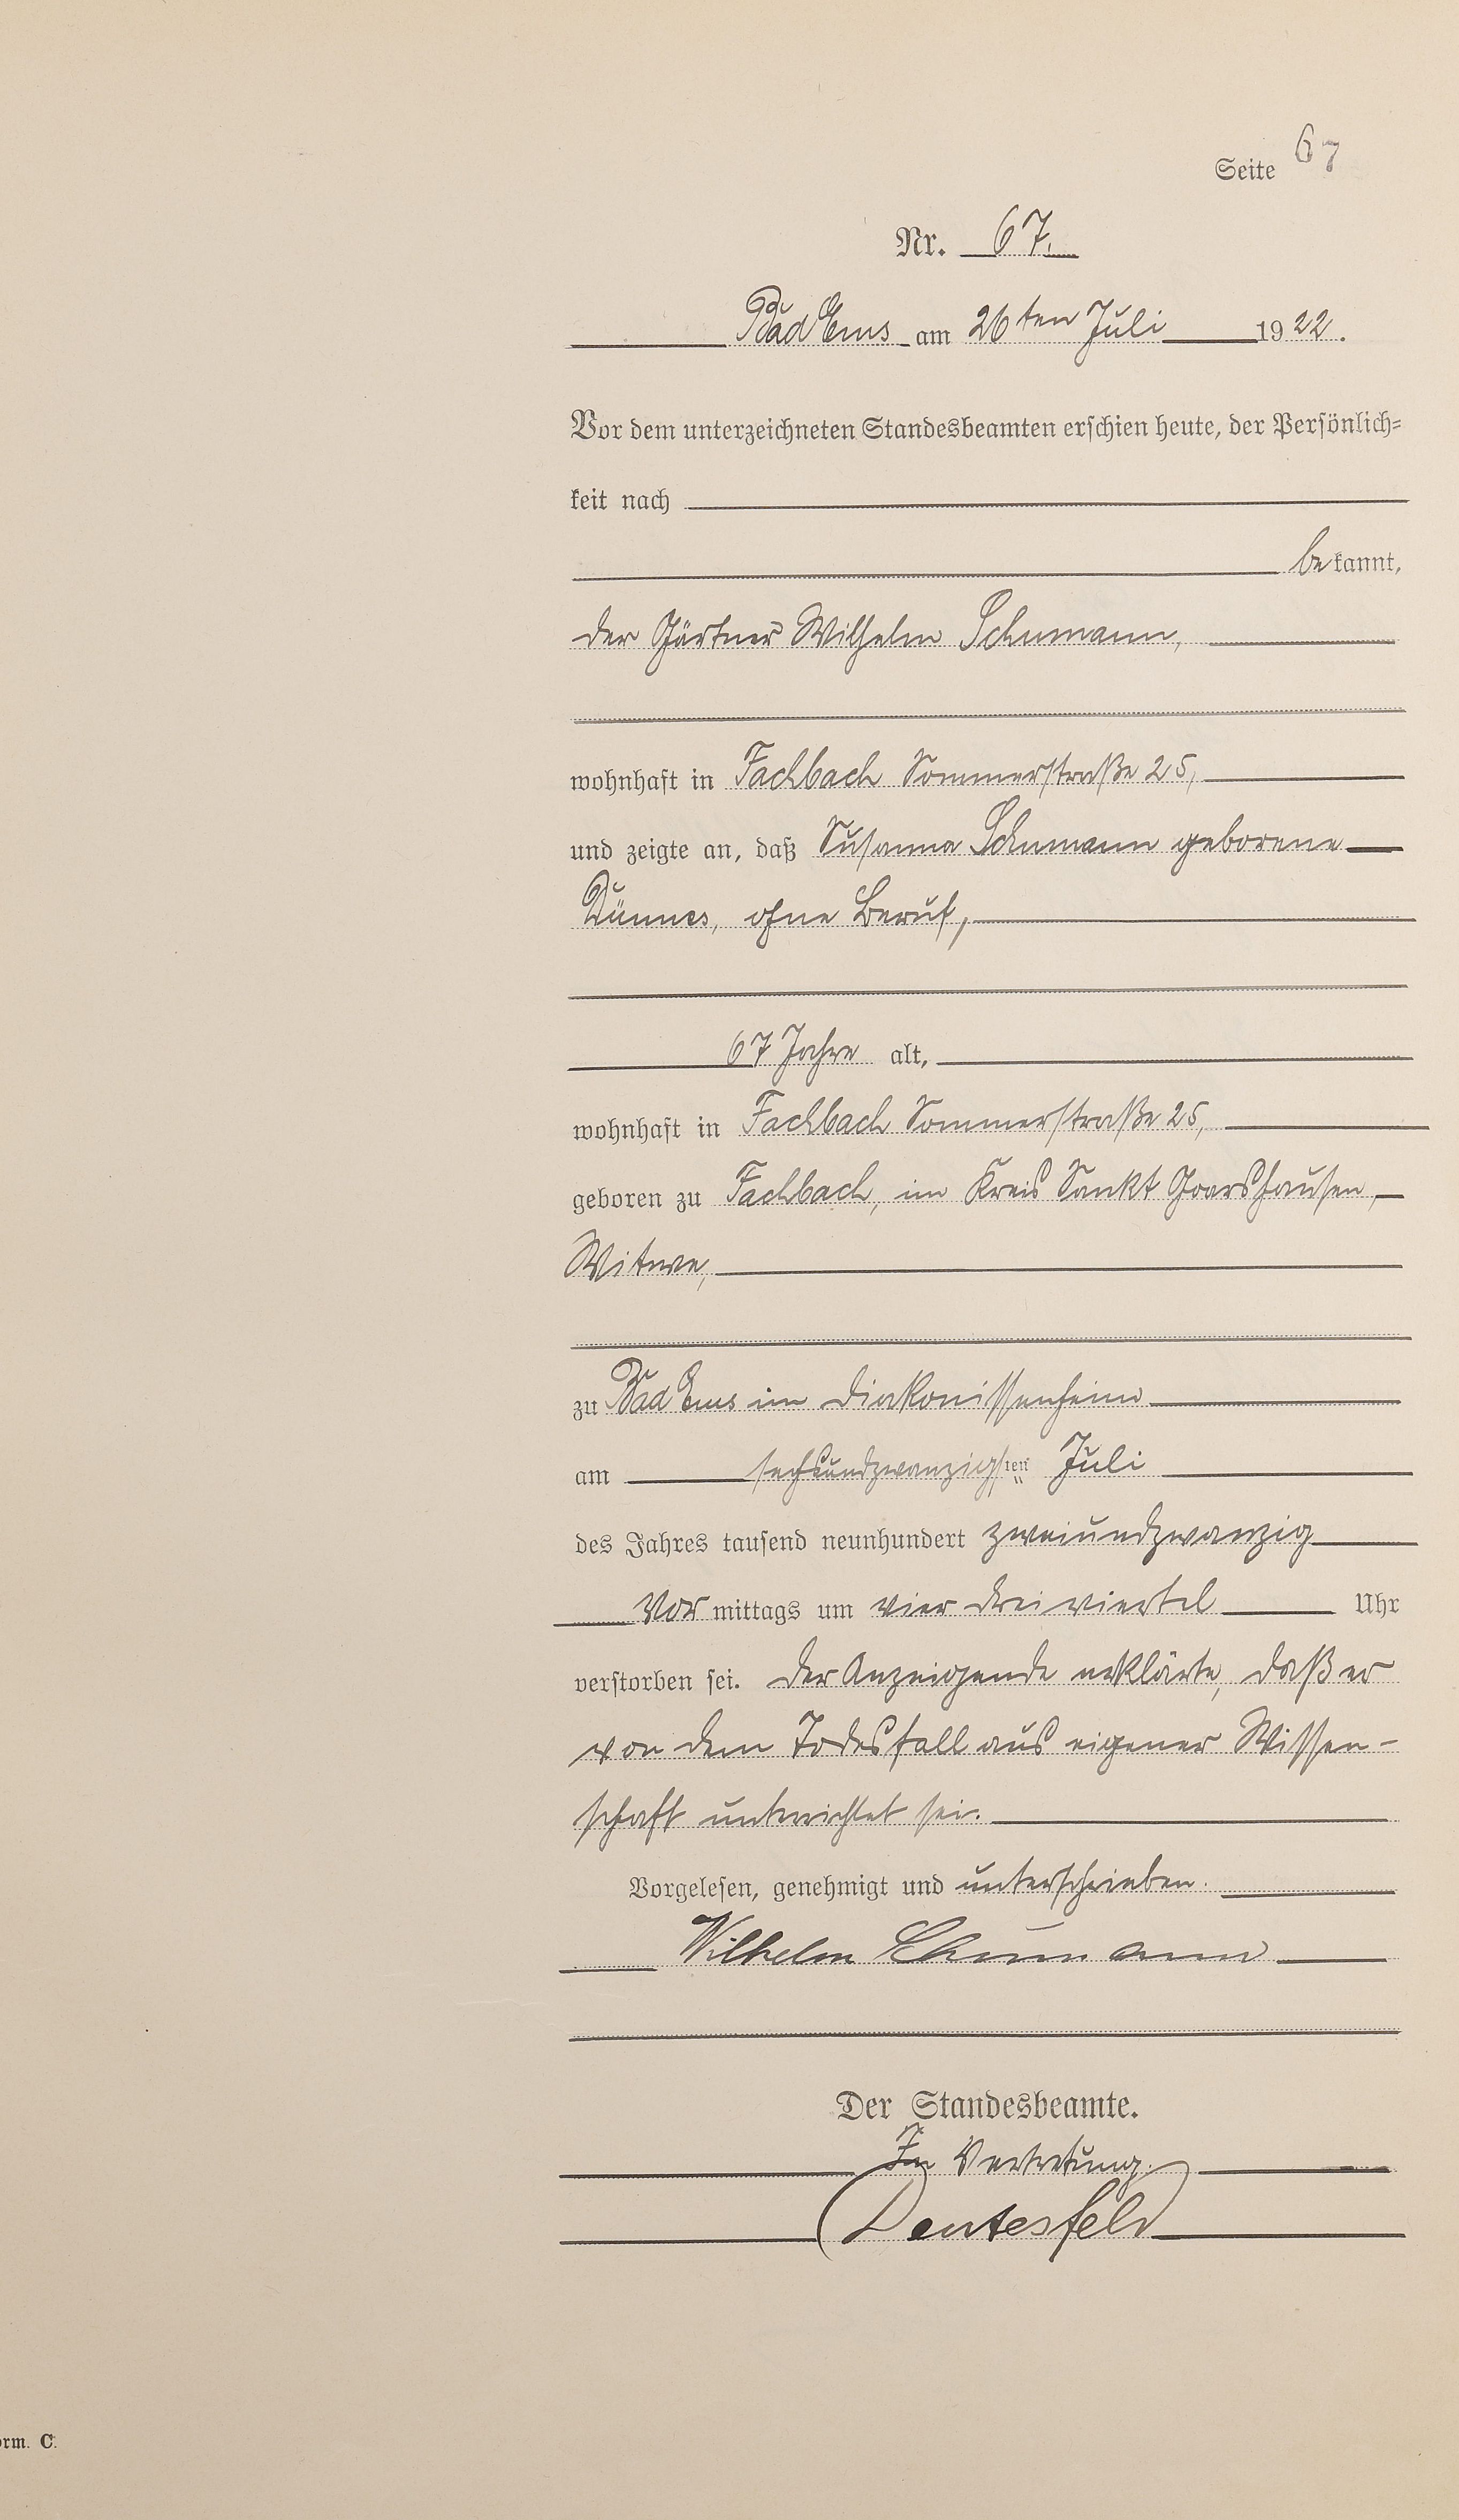 Seite 67
Nr. 67.
Bad Ems am 26ten Juli 1922.
Vor dem unterzeichneten Standesbeamten erschien heute, der Persönlich=
keit nach
bekannt,
der Gärtner Wilhelm Schumann,
wohnhaft in Fachbach Sommerstraße 25,
und zeigte an, daß Susanna Schumann geborene
Dünnes, ohne Beruf,
67 Jahre alt,
wohnhaft in Fachbach Sommerstraße 25,
geboren zu Fachbach, im Kreis Sankt Goarshausen,
Witwe,
zu Bad Ems im Diakonissenheim
am sechsundzwanzigsten Juli
des Jahres tausend neunhundert zweiundzwanzig
Vormittags um vier dreiviertel Uhr
verstorben sei. Der Anzeigende erklärte, daß er
von dem Todesfall aus eigener Wissen-
schaft unterrichtet sei.
Vorgelesen, genehmigt und unterschrieben.
Wilhelm Schumann
Der Standesbeamte.
In Vertretung.
Dentesfeld
orm. C.